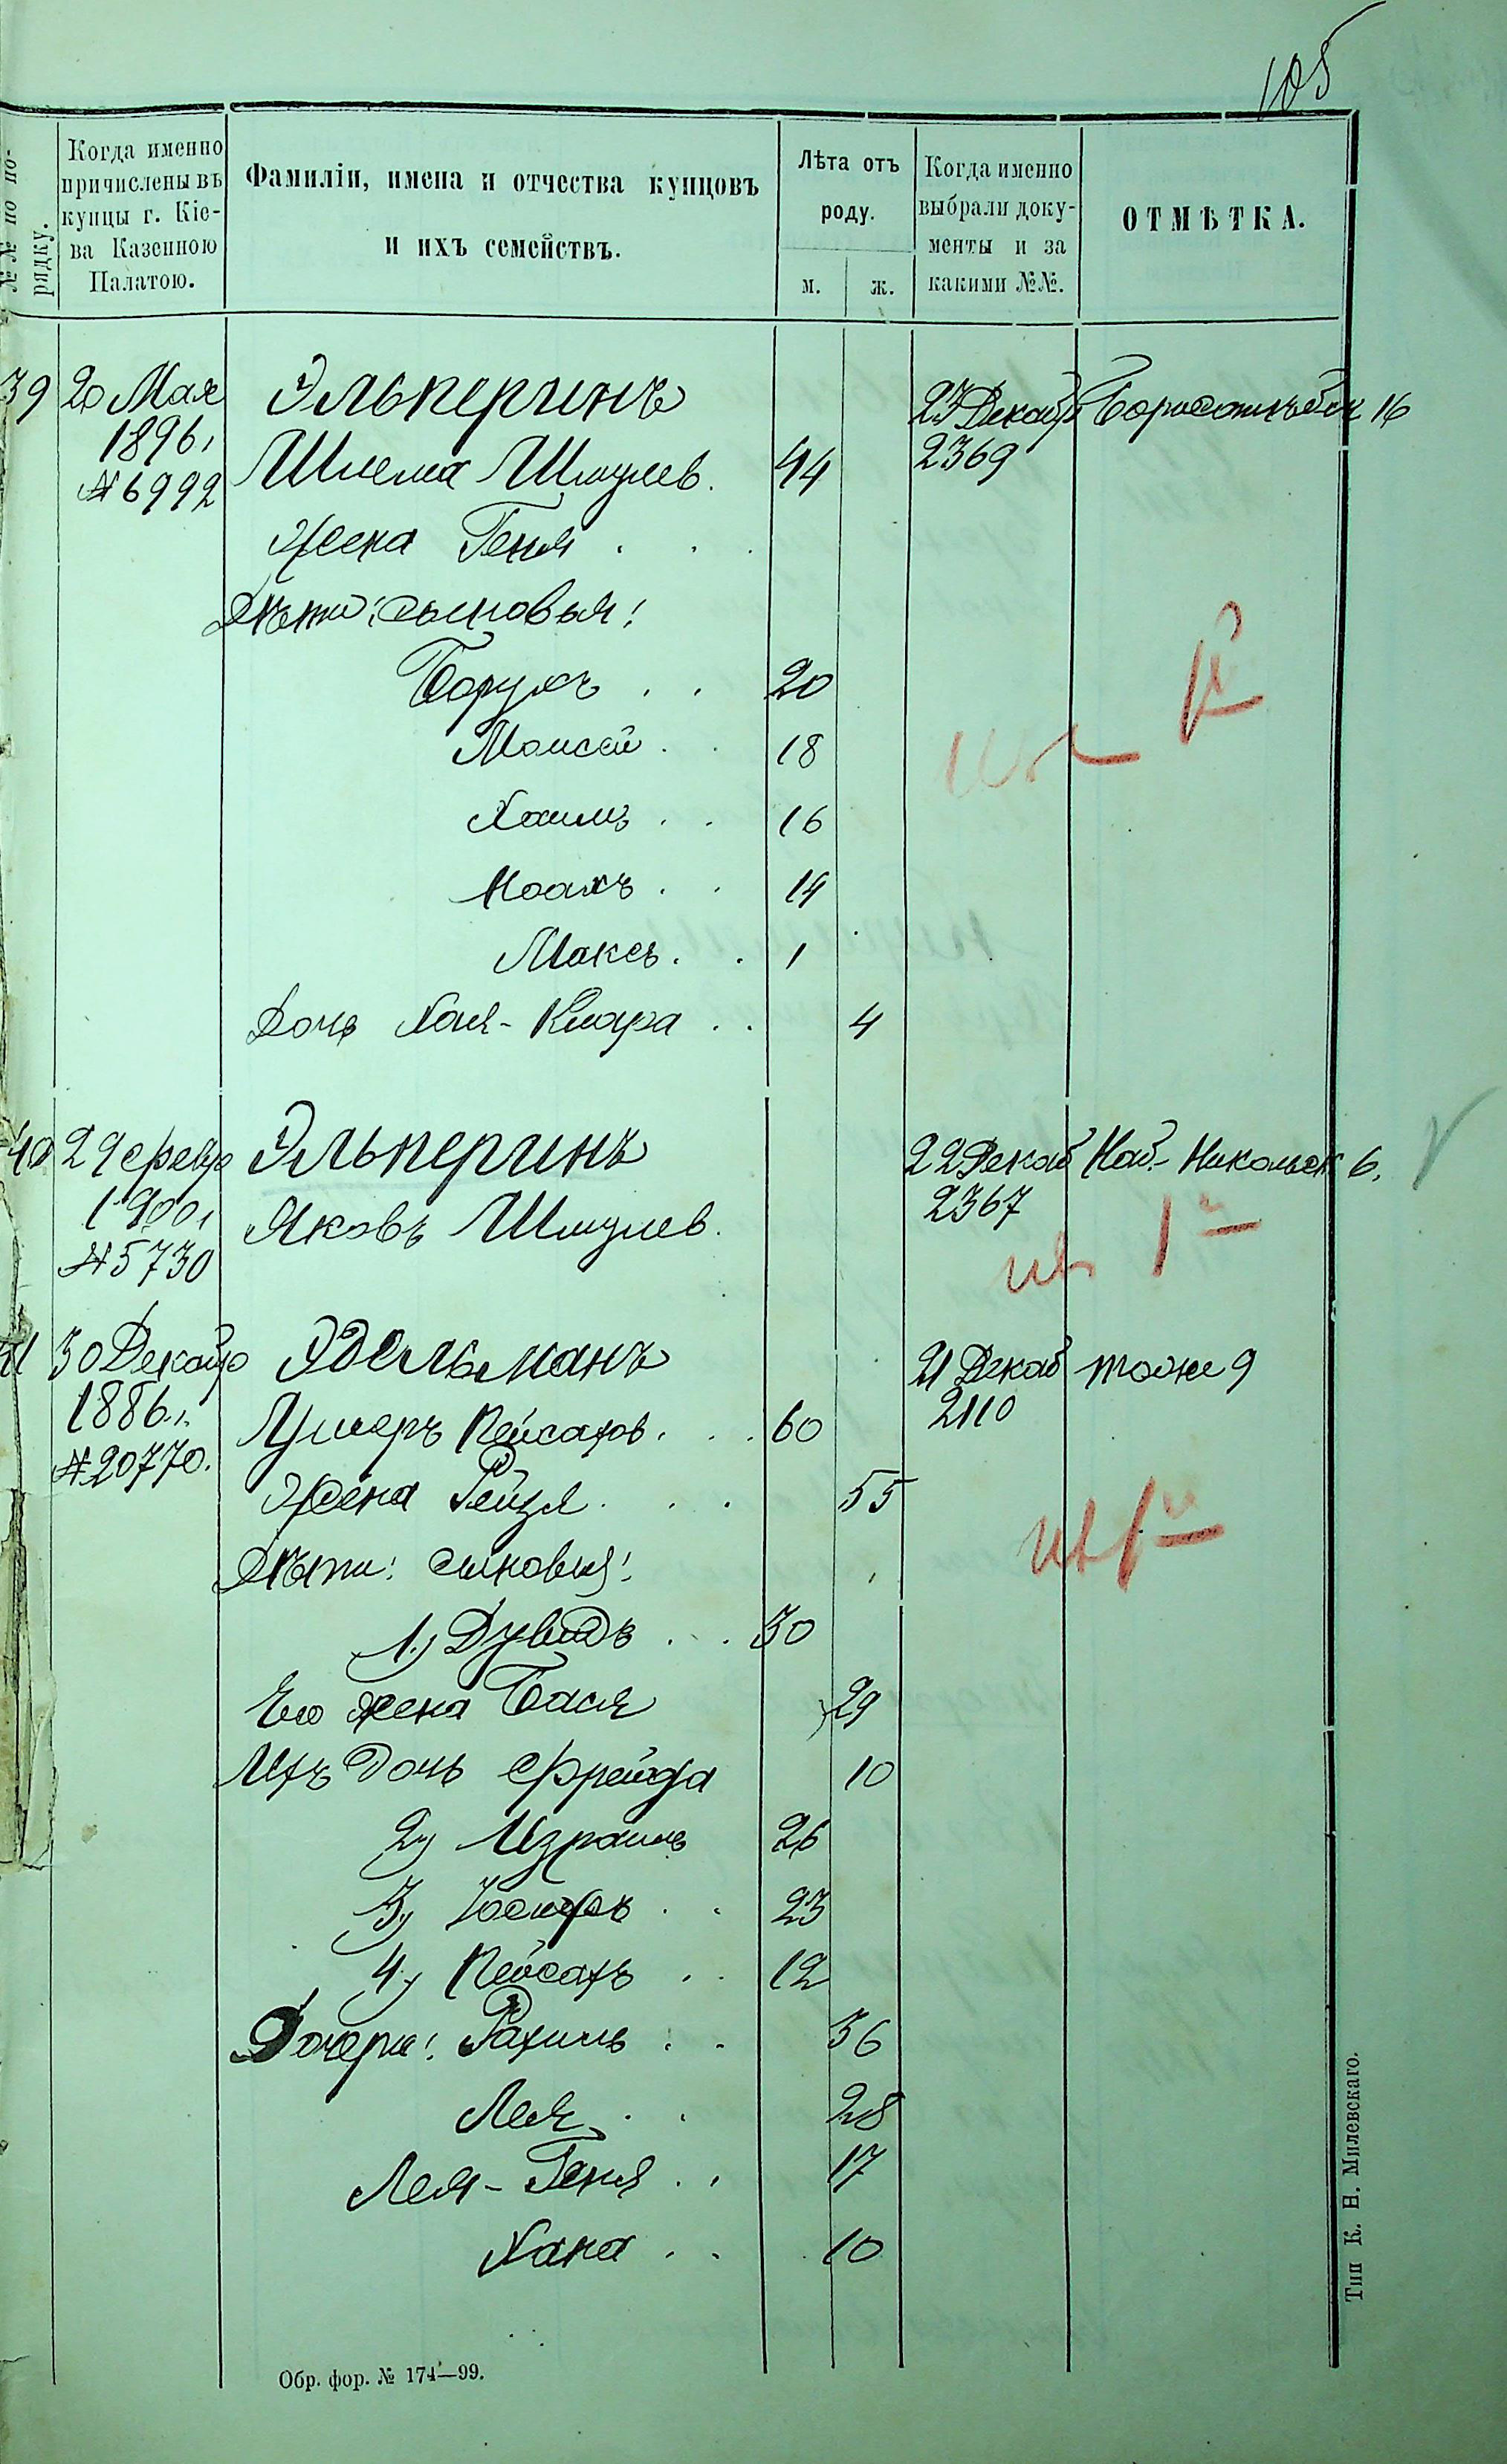 105
№№ по по-
рядку.
Когда именно
причислены въ
купцы г. Кіе-
ва Казенною
Палатою.
Фамиліи, имена и отчества купцовъ
и ихъ семействъ.
Лѣта отъ
роду.
м. ж.
Когда именно
выбрали доку-
менты и за
какими №№.
ОТМѢТКА.
39 20 Мая Эльперинъ 23 Декабр 16
1896, Шлема Шмулев. 44 2369
№ 6992
Жена Геня . . .
Дѣти: сыновья:
Борухъ . . 20
Моисей . . 18
Хаимъ . . 16
Ноахъ . . 14
Максъ . . 1
Дочь Хая-Клара . . 4
40 29 февр Эльперинъ 22 Декаб Наб-Никольск 6.
1900, Яковъ Шмулев. 2367
№ 5730
41 30 Декабр Эдельманъ 21 Декаб тоже 9
1886, Ушеръ Пейсахов. . . 60 2110
№ 20770.
Жена Рейзя . . . 55
Дѣти: сыновья:
1.) Дувидъ . . . 30
Его жена Бася 29
Ихъ дочь Фрейда 10
2) Израиль 26
3) Іосифъ . . 23
4) Пейсахъ . . 12
Дочери: Рахиль . . 36
Лея . . 28
Лея-Геня . . 17
Хана . . 10
Обр. фор. № 174—99.
Тип К. Н. Милевскаго.